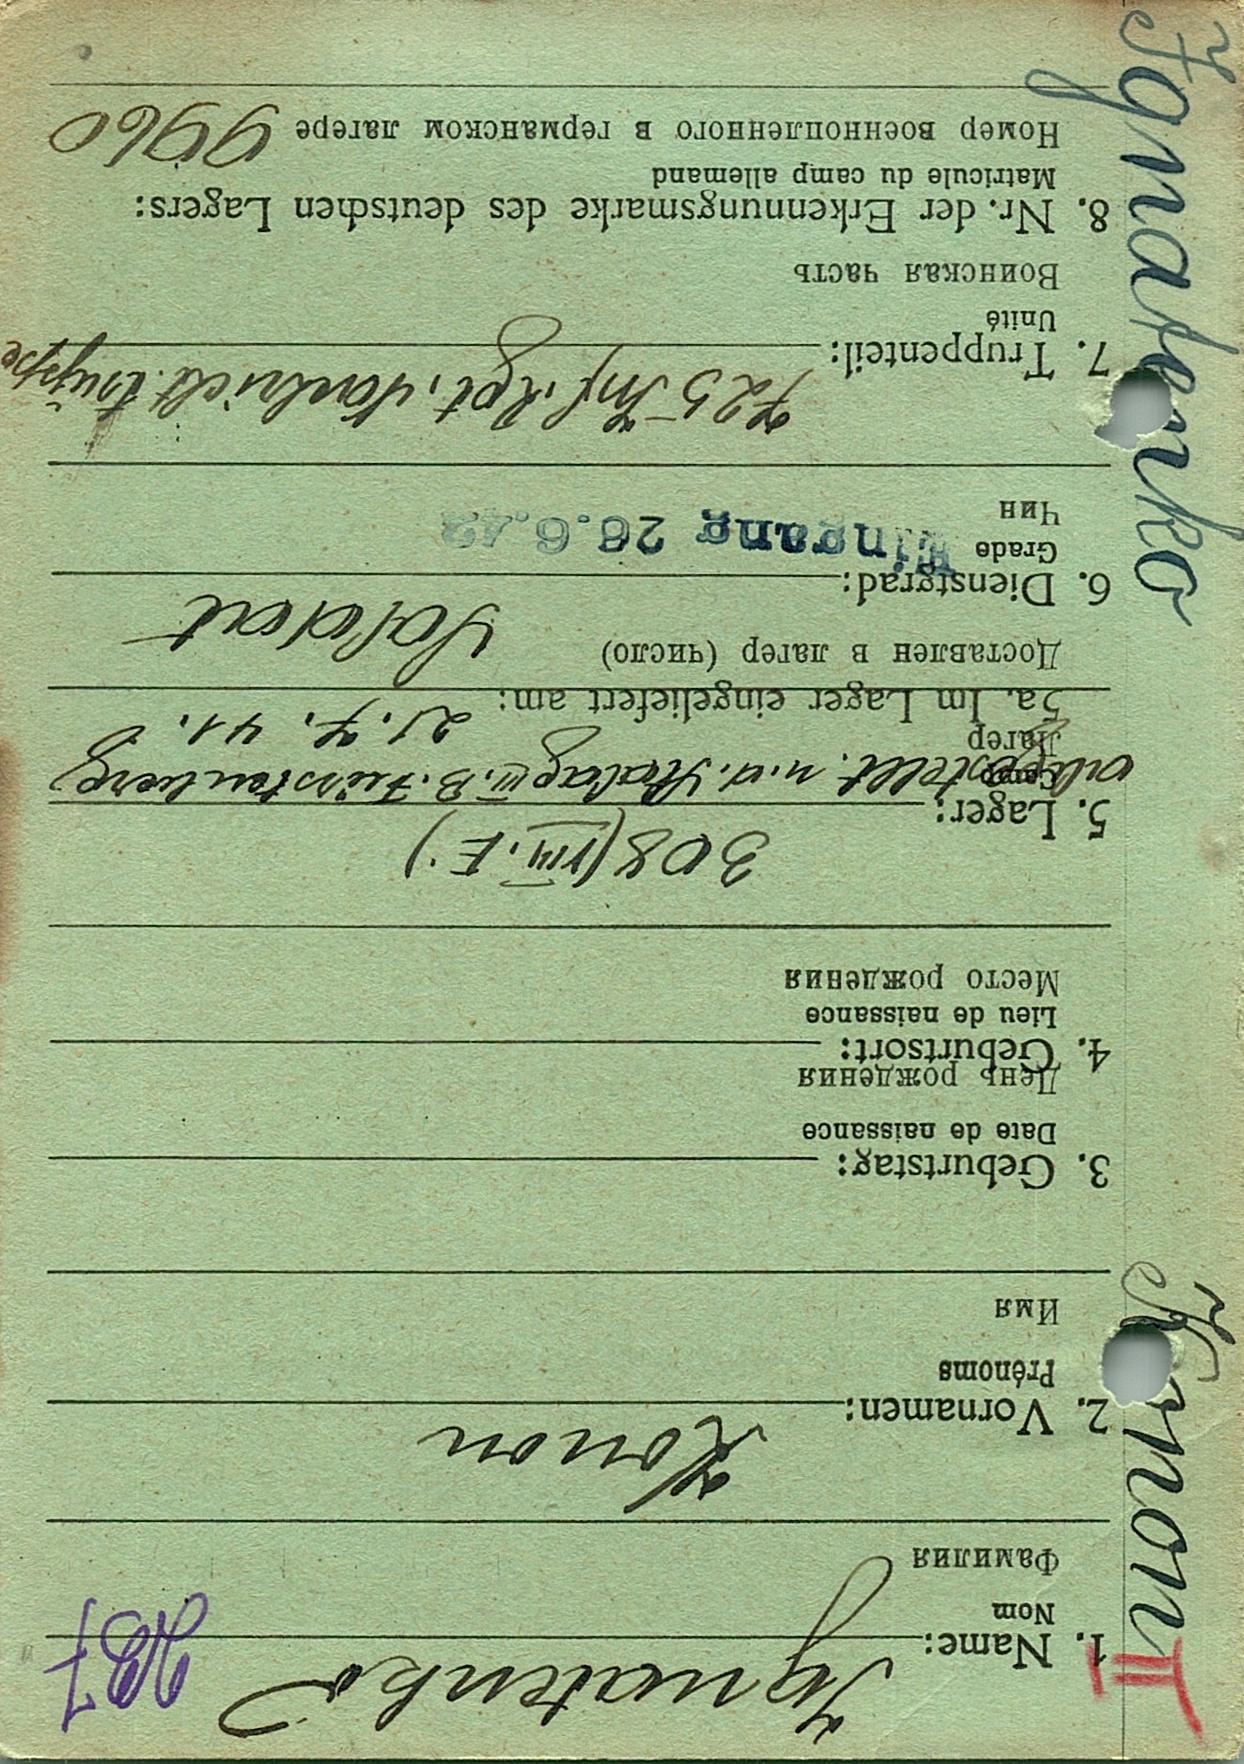 Ignatenko Konon II
Ignatenko 287
1. Name:
Nom
Фамилия
Konon
2. Vornamen:
Prénoms
Имя
3. Geburtstag:
Date de naissance
День рождения
4. Geburtsort:
Lieu de naissance
Место рождения
308 (VIII. E.)
5. Lager:
Camp
Лагер
abgestellt. n. d. Stalag III. B. Fürstenberg
21. 7. 41.
5a. Im Lager eingeliefert am:
Доставлен в лагер (число)
Soldat
6. Dienstgrad:
Grade
Чин
Eingang 26.6.42
725 Inf. Rgt. Nachricht. truppe
7. Truppenteil:
Unité
Воинская часть
8. Nr. der Erkennungsmarke des deutschen Lagers:
Matricule du camp allemand
Номер военнопленного в германском лагере 9960